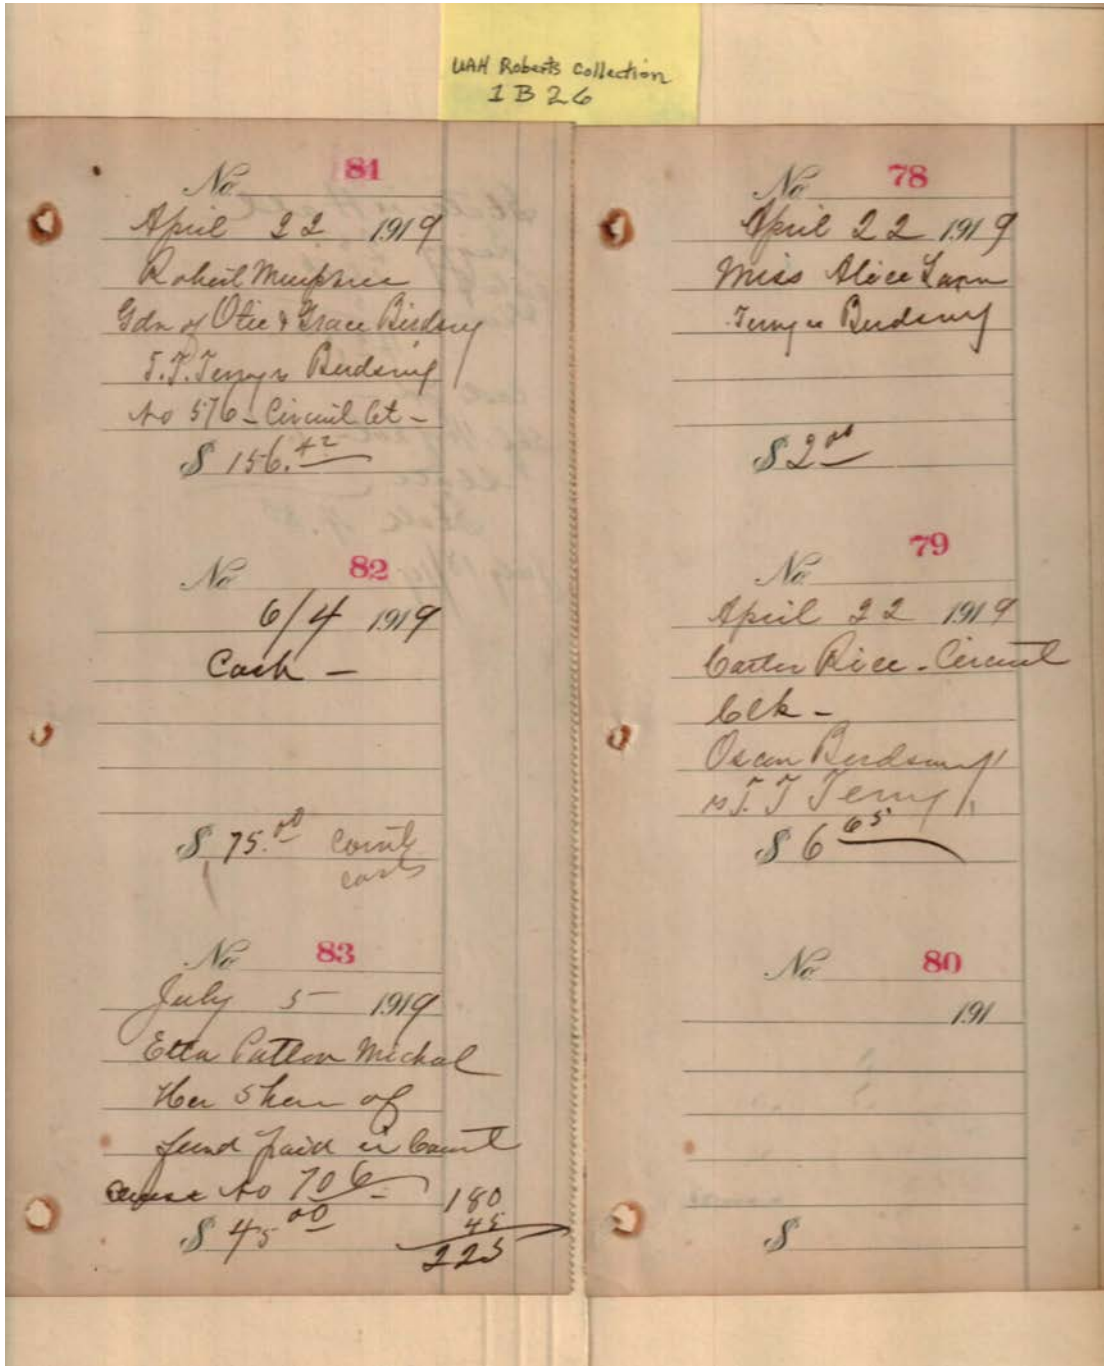 UAH Roberts Collection
1 B 26
No 81
April 22 1919
Robert Murphree
Gdn of Otie & Grace Birdsong
T.T. Terry vs Birdsong
No 576 - Circuit Ct -
$ 156.42
No 82
6/4 1919
Cash -
$ 75.00 Court
costs
No 83
July 5 - 1919
Etta Patton Michal
Her Share of
fund paid in Court
cause No 706 -
180
$ 45.00
45
225
No 78
April 22 1919
Miss Alice
Terry vs Birdsong
$ 2.00
No 79
April 22 1919
Carter Rice - Circuit
Clk -
Oscar Birdsong
vs T. T Terry
$ 6 65
No 80
191
$